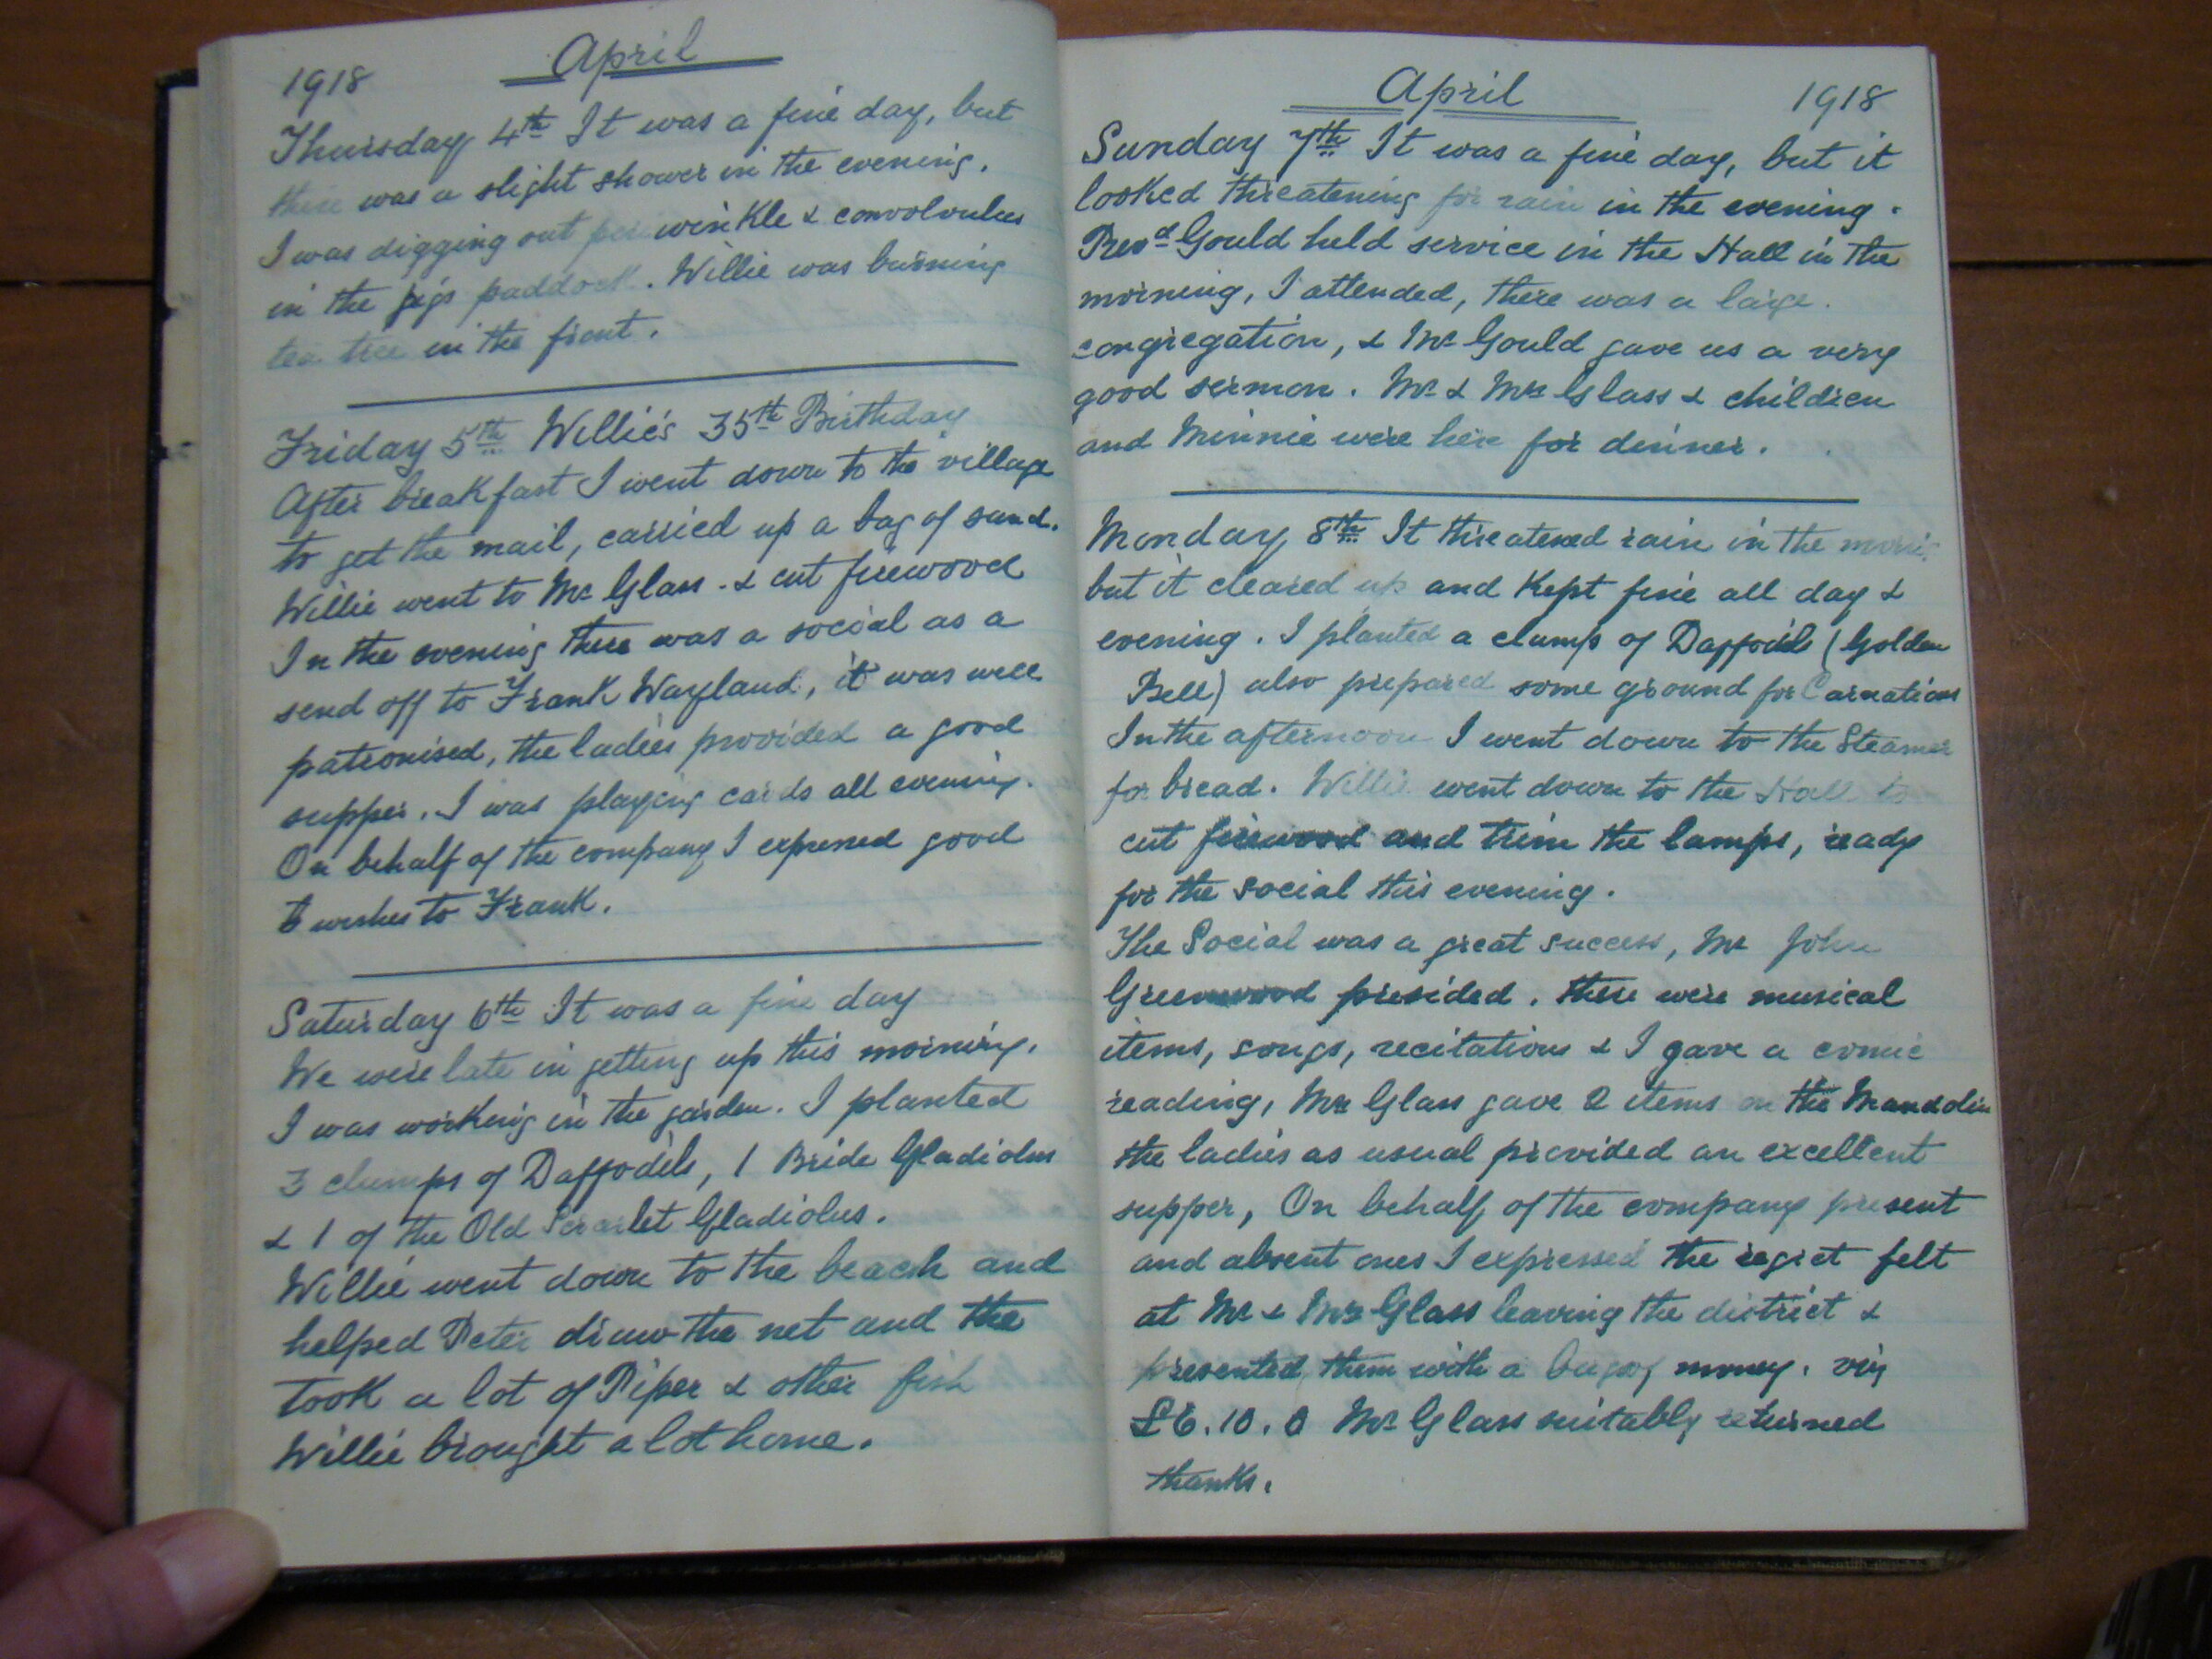 1918
April
Thursday 4th It was a fine day, but
there was a slight shower in the evening.
I was digging out periwinkle & convolvulus
in the pigs paddock. Willie was burning
tea tree in the front.
Friday 5th Willie's 35th Birthday
After breakfast I went down to the village
to get the mail, carried up a bag of sand.
Willie went to Mr Glass - & cut firewood
In the evening there was a social as a
send off to Frank Wayland, it was well
patronised, the ladies provided a good
supper. I was playing cards all evening.
On behalf of the company I expressed good
wishes to Frank.
Saturday 6th It was a fine day
We were late in getting up this morning.
I was working in the garden. I planted
3 clumps of Daffodils, 1 Bride Gladiolus
& 1 of the Old Scarlet Gladiolus.
Willie went down to the beach and
helped Peter draw the net and the
took a lot of Piper & other fish
Willie brought a lot home.
April
1918
Sunday 7th It was a fine day, but it
looked threatening for rain in the evening.
Revd Gould held service in the Hall in the
morning, I attended, there was a large
congregation, & Mr Gould gave us a very
good sermon. Mr & Mrs Glass & children
and Minnie were here for dinner.
Monday 8th It threatened rain in the
but it cleared up and Kept fine all day &
evening. I planted a clump of Daffodils (Golden
Bell) also prepared some ground for Carnations
In the afternoon I went down to the Steamer
for bread. Willie went down to the Hall to
cut firewood and trim the lamps, ready
for the social this evening.
The Social was a great success, Mr John
Greenwood presided. there were musical
items, songs, recitations & I gave a comic
reading, Mr Glass gave 2 items on the Mandolin
the ladies as usual provided an excellent
supper, On behalf of the company present
and absent ones I expressed the regret felt
at Mr & Mrs Glass leaving the district &
presented them with a bag of money. viz
£6.10.0 Mr Glass suitably returned
thanks.